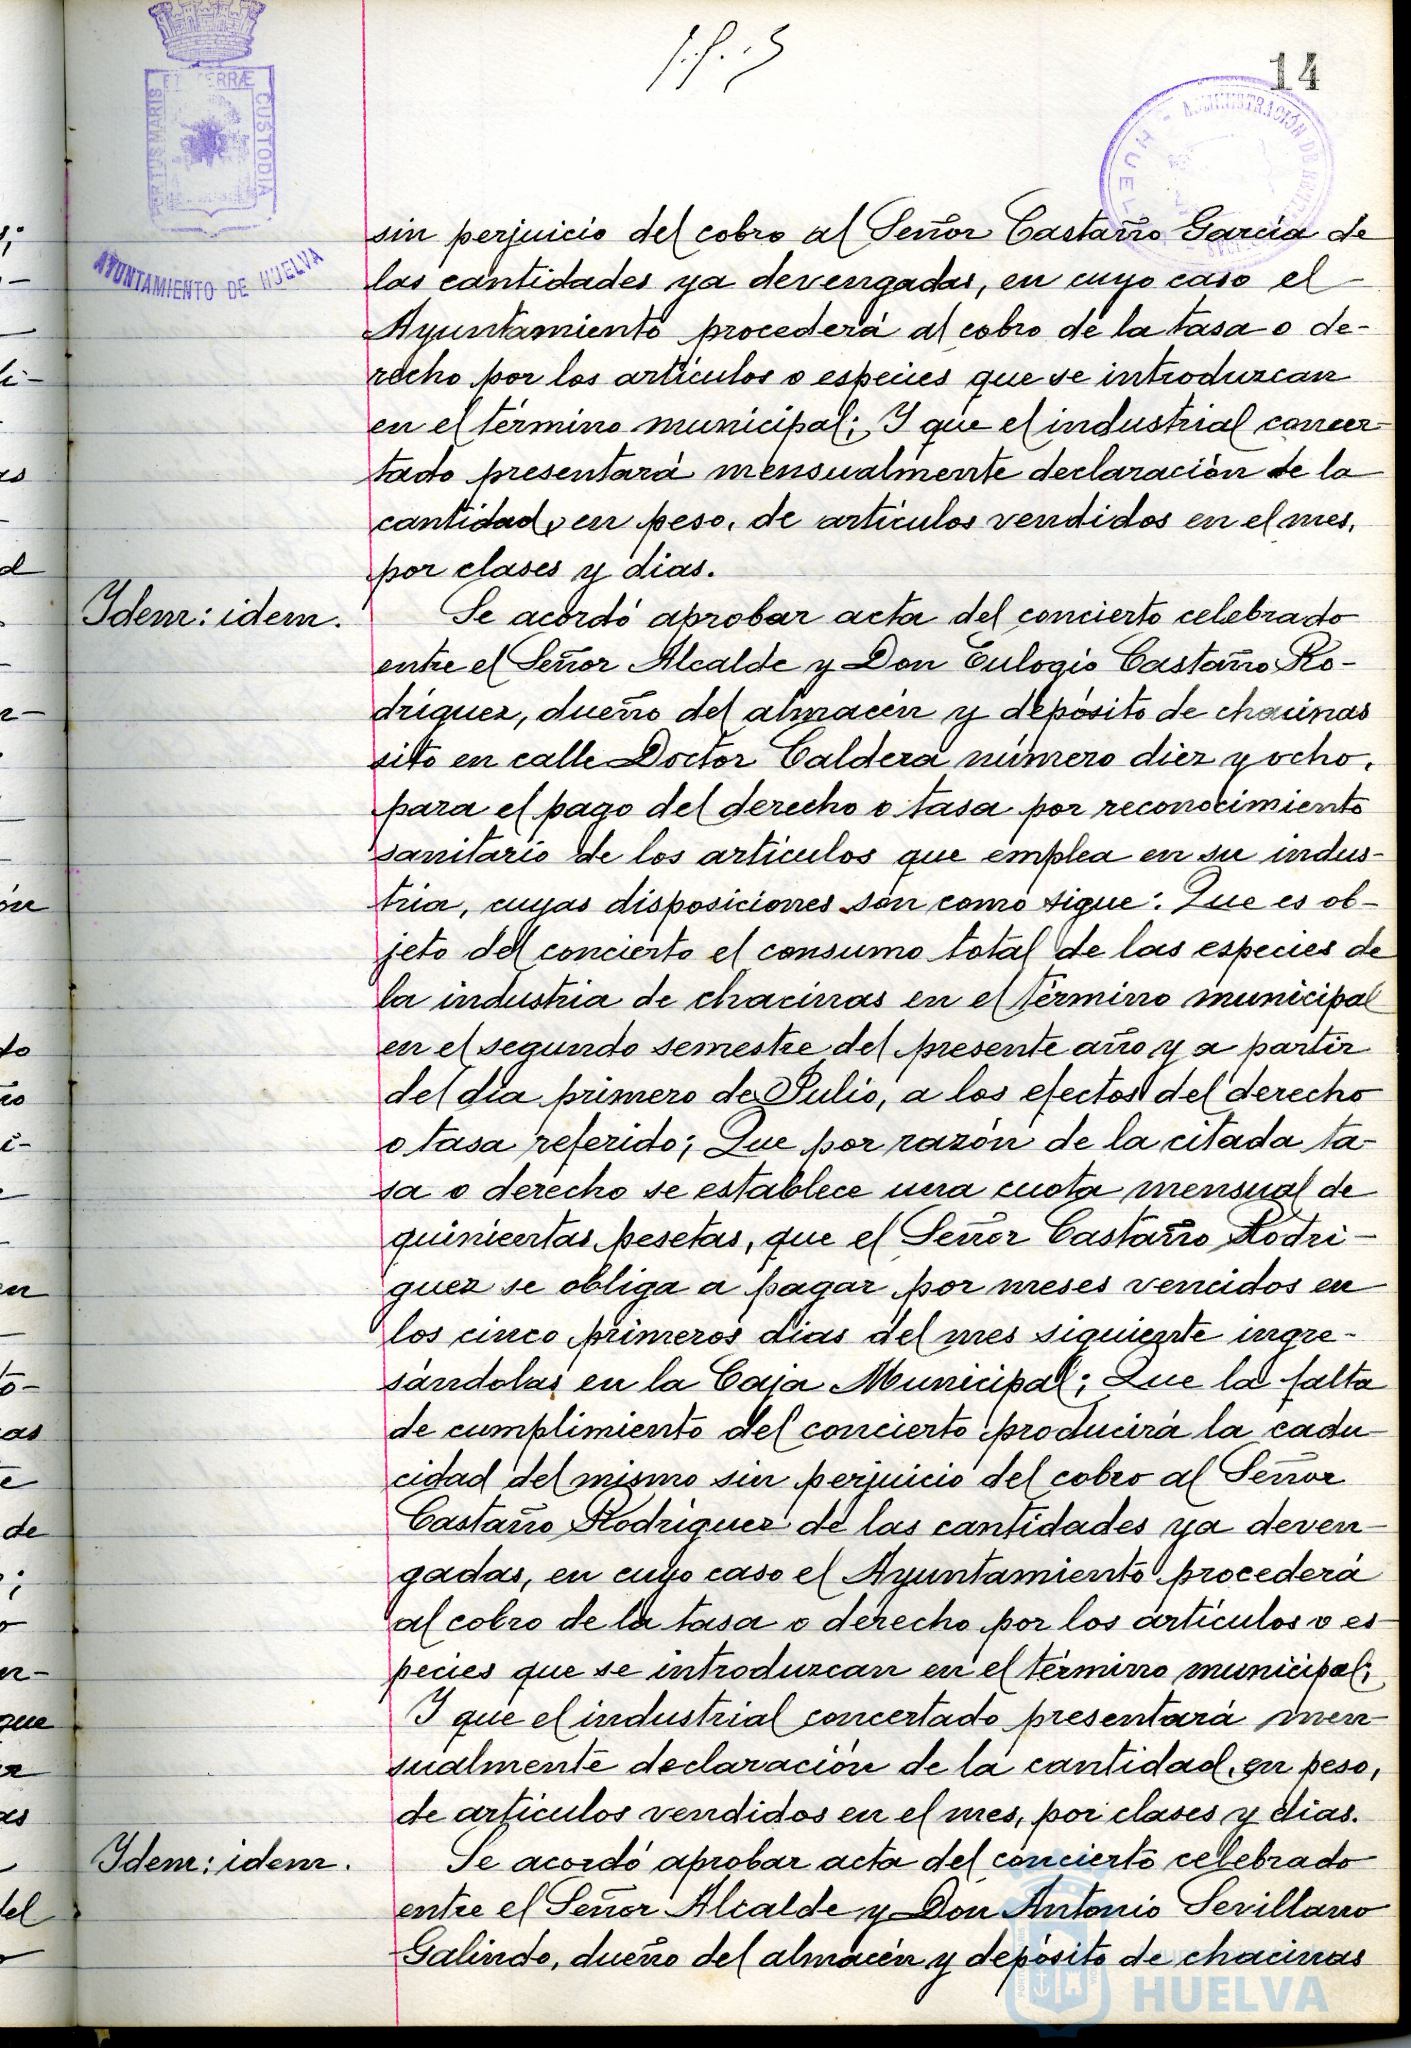 14
PORTUS MARIS
ET TERRÆ
CUSTODIA
AYUNTAMIENTO DE HUELVA
ADMINISTRACIÓN DE
sin perjuicio del cobro al Señor Castaño García de
las cantidades ya devengadas, en cuyo caso el –
Ayuntamiento procederá al cobro de la tasa o de-
recho por los artículos o especies que se introduzcan
en el término municipal; Y que el industrial concer-
tado presentará mensualmente declaración de la
cantidad, en peso, de artículos vendidos en el mes,
por clases y dias.
Idem: idem.
Se acordó aprobar acta del concierto celebrado
entre el Señor Alcalde y Don Eulogio Castaño Ro-
dríguez, dueño del almacén y depósito de chacinas
sito en calle Doctor Caldera número diez y ocho,
para el pago del derecho o tasa por reconocimiento
sanitario de los artículos que emplea en su indus-
tria, cuyas disposiciones son como sigue: Que es ob-
jeto del concierto el consumo total de las especies de
la industria de chacinas en el término municipal
en el segundo semestre del presente año y a partir
del día primero de Julio, a los efectos del derecho
o tasa referido; Que por razón de la citada ta-
sa o derecho se establece una cuota mensual de
quinientas pesetas, que el Señor Castaño Rodri-
guez se obliga a pagar por meses vencidos en
los cinco primeros dias del mes siguiente ingre-
sándolas en la Caja Municipal; Que la falta
de cumplimiento del concierto producirá la cadu-
cidad del mismo sin perjuicio del cobro al Señor
Castaño Rodríguez de las cantidades ya deven-
gadas, en cuyo caso el Ayuntamiento procederá
al cobro de la tasa o derecho por los artículos o es-
pecies que se introduzcan en el término municipal;
Y que el industrial concertado presentará men-
sualmente declaración de la cantidad, en peso,
de artículos vendidos en el mes, por clases y dias.
Idem: idem.
Se acordó aprobar acta del concierto celebrado
entre el Señor Alcalde y Don Antonio Sevillano
Galindo, dueño del almacén y depósito de chacinas
HUELVA